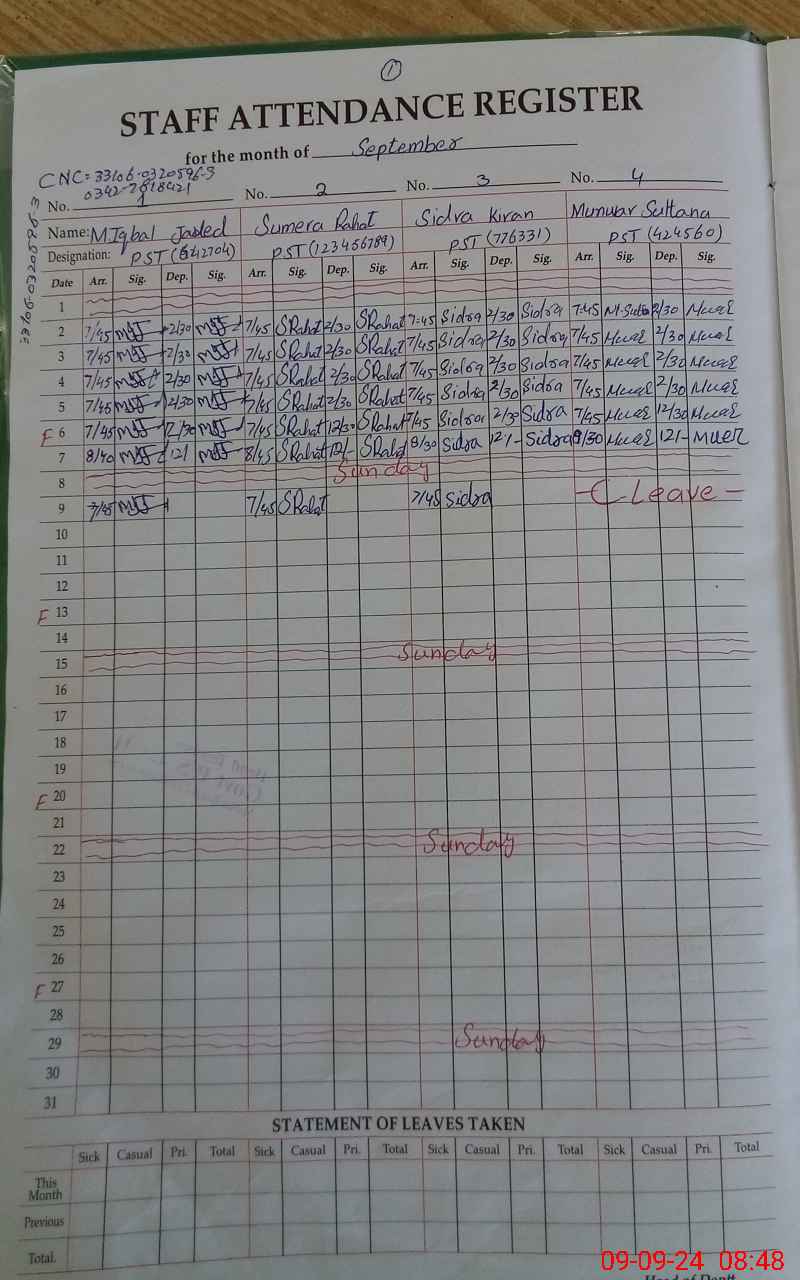 1
STAFF ATTENDANCE REGISTER
for the month of September
CNC= 33106-0320596-3
0342-7618421
33106-0320596-3
No. 1 No. 2 No. 3 No. 4
Name: M.Iqbal Javed Sumera Rahat Sidra Kiran Munwar Sultana
Designation: PST (642704) PST (123456789) PST (776331) PST (424560)
Date Arr. Sig. Dep. Sig. Arr. Sig. Dep. Sig. Arr. Sig. Dep. Sig. Arr. Sig. Dep. Sig.
1
2 7/45 2/30 7/45 SRahat 2/30 SRahat 7:45 Sidra 2/30 Sidra 7:45 2/30
3 7/45 2/30 7/45 SRahat 2/30 SRahat 7/45 Sidra 2/30 Sidra 7/45 2/30
4 7/45 2/30 7/45 SRahat 2/30 SRahat 7/45 Sidra 2/30 Sidra 7/45 2/30
5 7/45 2/30 7/45 SRahat 2/30 SRahat 7/45 Sidra 2/30 Sidra 7/45 2/30
F 6 7/45 12/30 7/45 SRahat 12/30 SRahat 7/45 Sidra 2/30 Sidra 7/45 12/30
7 8/40 12/ 8/45 SRahat 12/- SRahat 8/30 Sidra 12/- Sidra 8/30 12/-
8 Sunday
9 7/45 7/45 SRahat 7/45 Sidra - C Leave -
10
11
12
F 13
14
15 Sunday
16
17
18
19
F 20
21
22 Sunday
23
24
25
26
F 27
28
29 Sunday
30
31
STATEMENT OF LEAVES TAKEN
Sick Casual Pri. Total Sick Casual Pri. Total Sick Casual Pri. Total Sick Casual Pri. Total
This Month
Previous
Total.
Head of Deptt
09-09-24 08:48